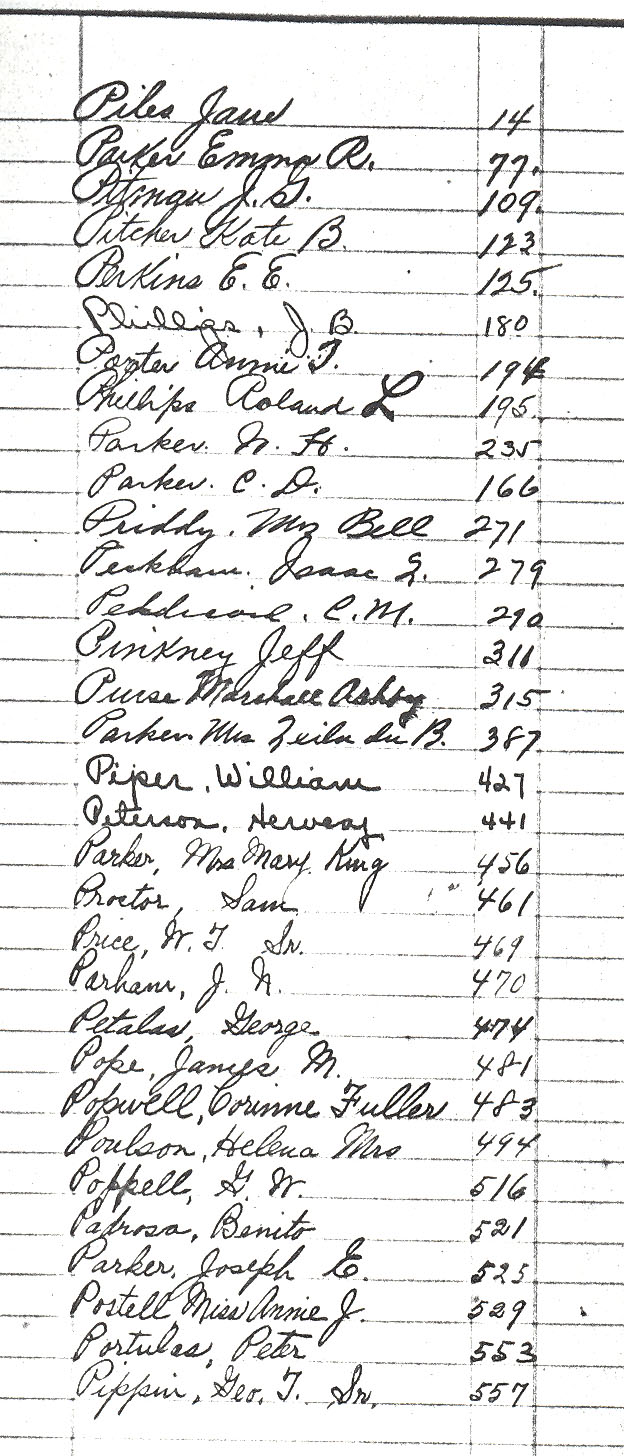 Piles Jane 14
Parker Emma R. 77.
J. G. 109.
Pitcher Kate B. 123
Perkins E. E. 125.
Phillips, J. B. 180
Porter Annie T. 194
Phillips Roland L 195
Parker. W. H. 235
Parker. C. D. 166
Priddy. Mrs Bell 271
Peckham. Isaac 279
C. M. 290
Pinkney Jeff 311
Purse Marshall Ashby 315
Parker Mrs Zeila du B. 387
Piper, William 427
Peterson, Hervey 441
Parker, Mrs Mary King 456
Proctor, Sam 461
Price, W. T. Sr. 469
Parham, J. N. 470
Petalas, George 474
Pope, James M. 481
Popwell, Corinne Fuller 483
Poulson, Helena Mrs 494
Poppell, G. W. 516
Benito 521
Parker, Joseph E. 525
Postell, Miss Annie J. 529
Portulas, Peter 553
Pippin, Geo. T. Sr. 557